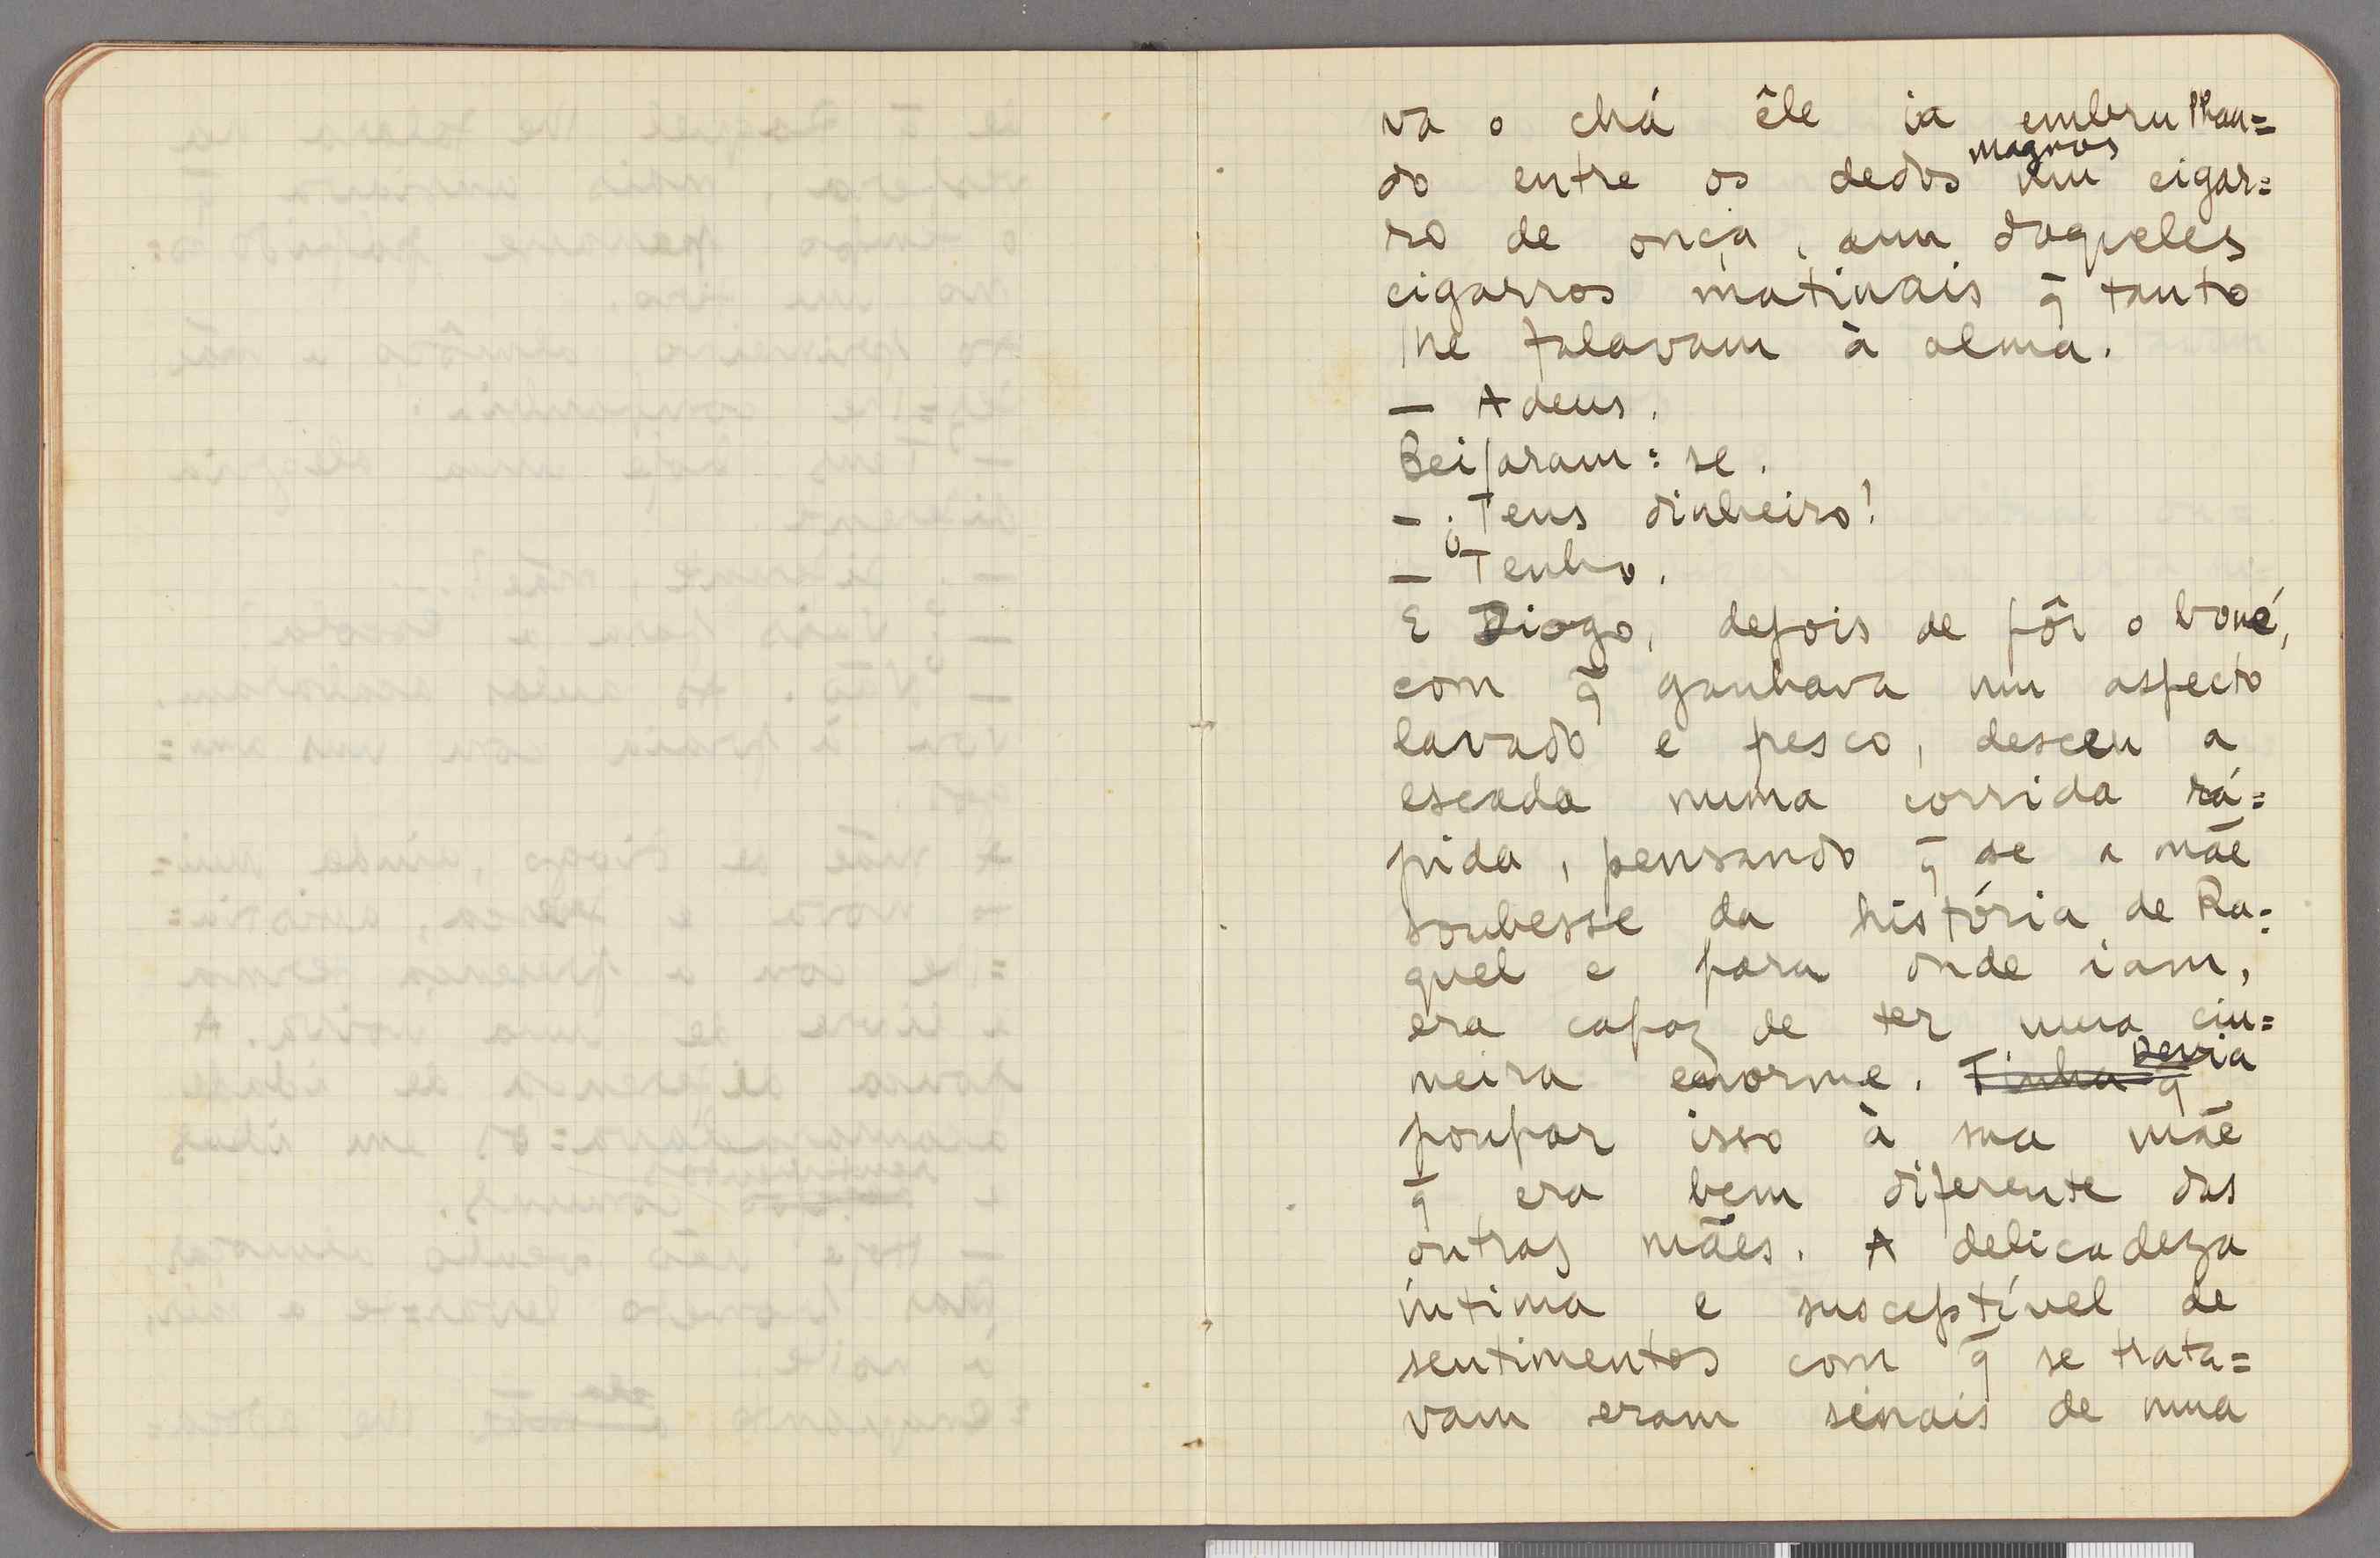 va o chá êle ia embrulhan=
do entre os dedos magros um cigar=
ro de onça, um daqueles
cigarros matinais q̄ tanto
lhe falavam à alma.
— Adeus.
Beijaram=se.
— ¿Tens dinheiro?
— Tenho.
E Diogo, depois de pôr o boné,
com q̄ ganhava um aspecto
lavado e fresco, desceu a
escada numa corrida rá=
pida, pensando q̄ se a mãe
soubesse da história de Ra=
quel e para onde iam,
era capaz de ter uma ciu=
meira enorme. Tinha q̄ Devia
poupar isso à sua mãe
q̄ era bem diferente das
outras mães. A delicadeza
íntima e susceptível de
sentimentos com q̄ se trata=
vam eram sinais de uma